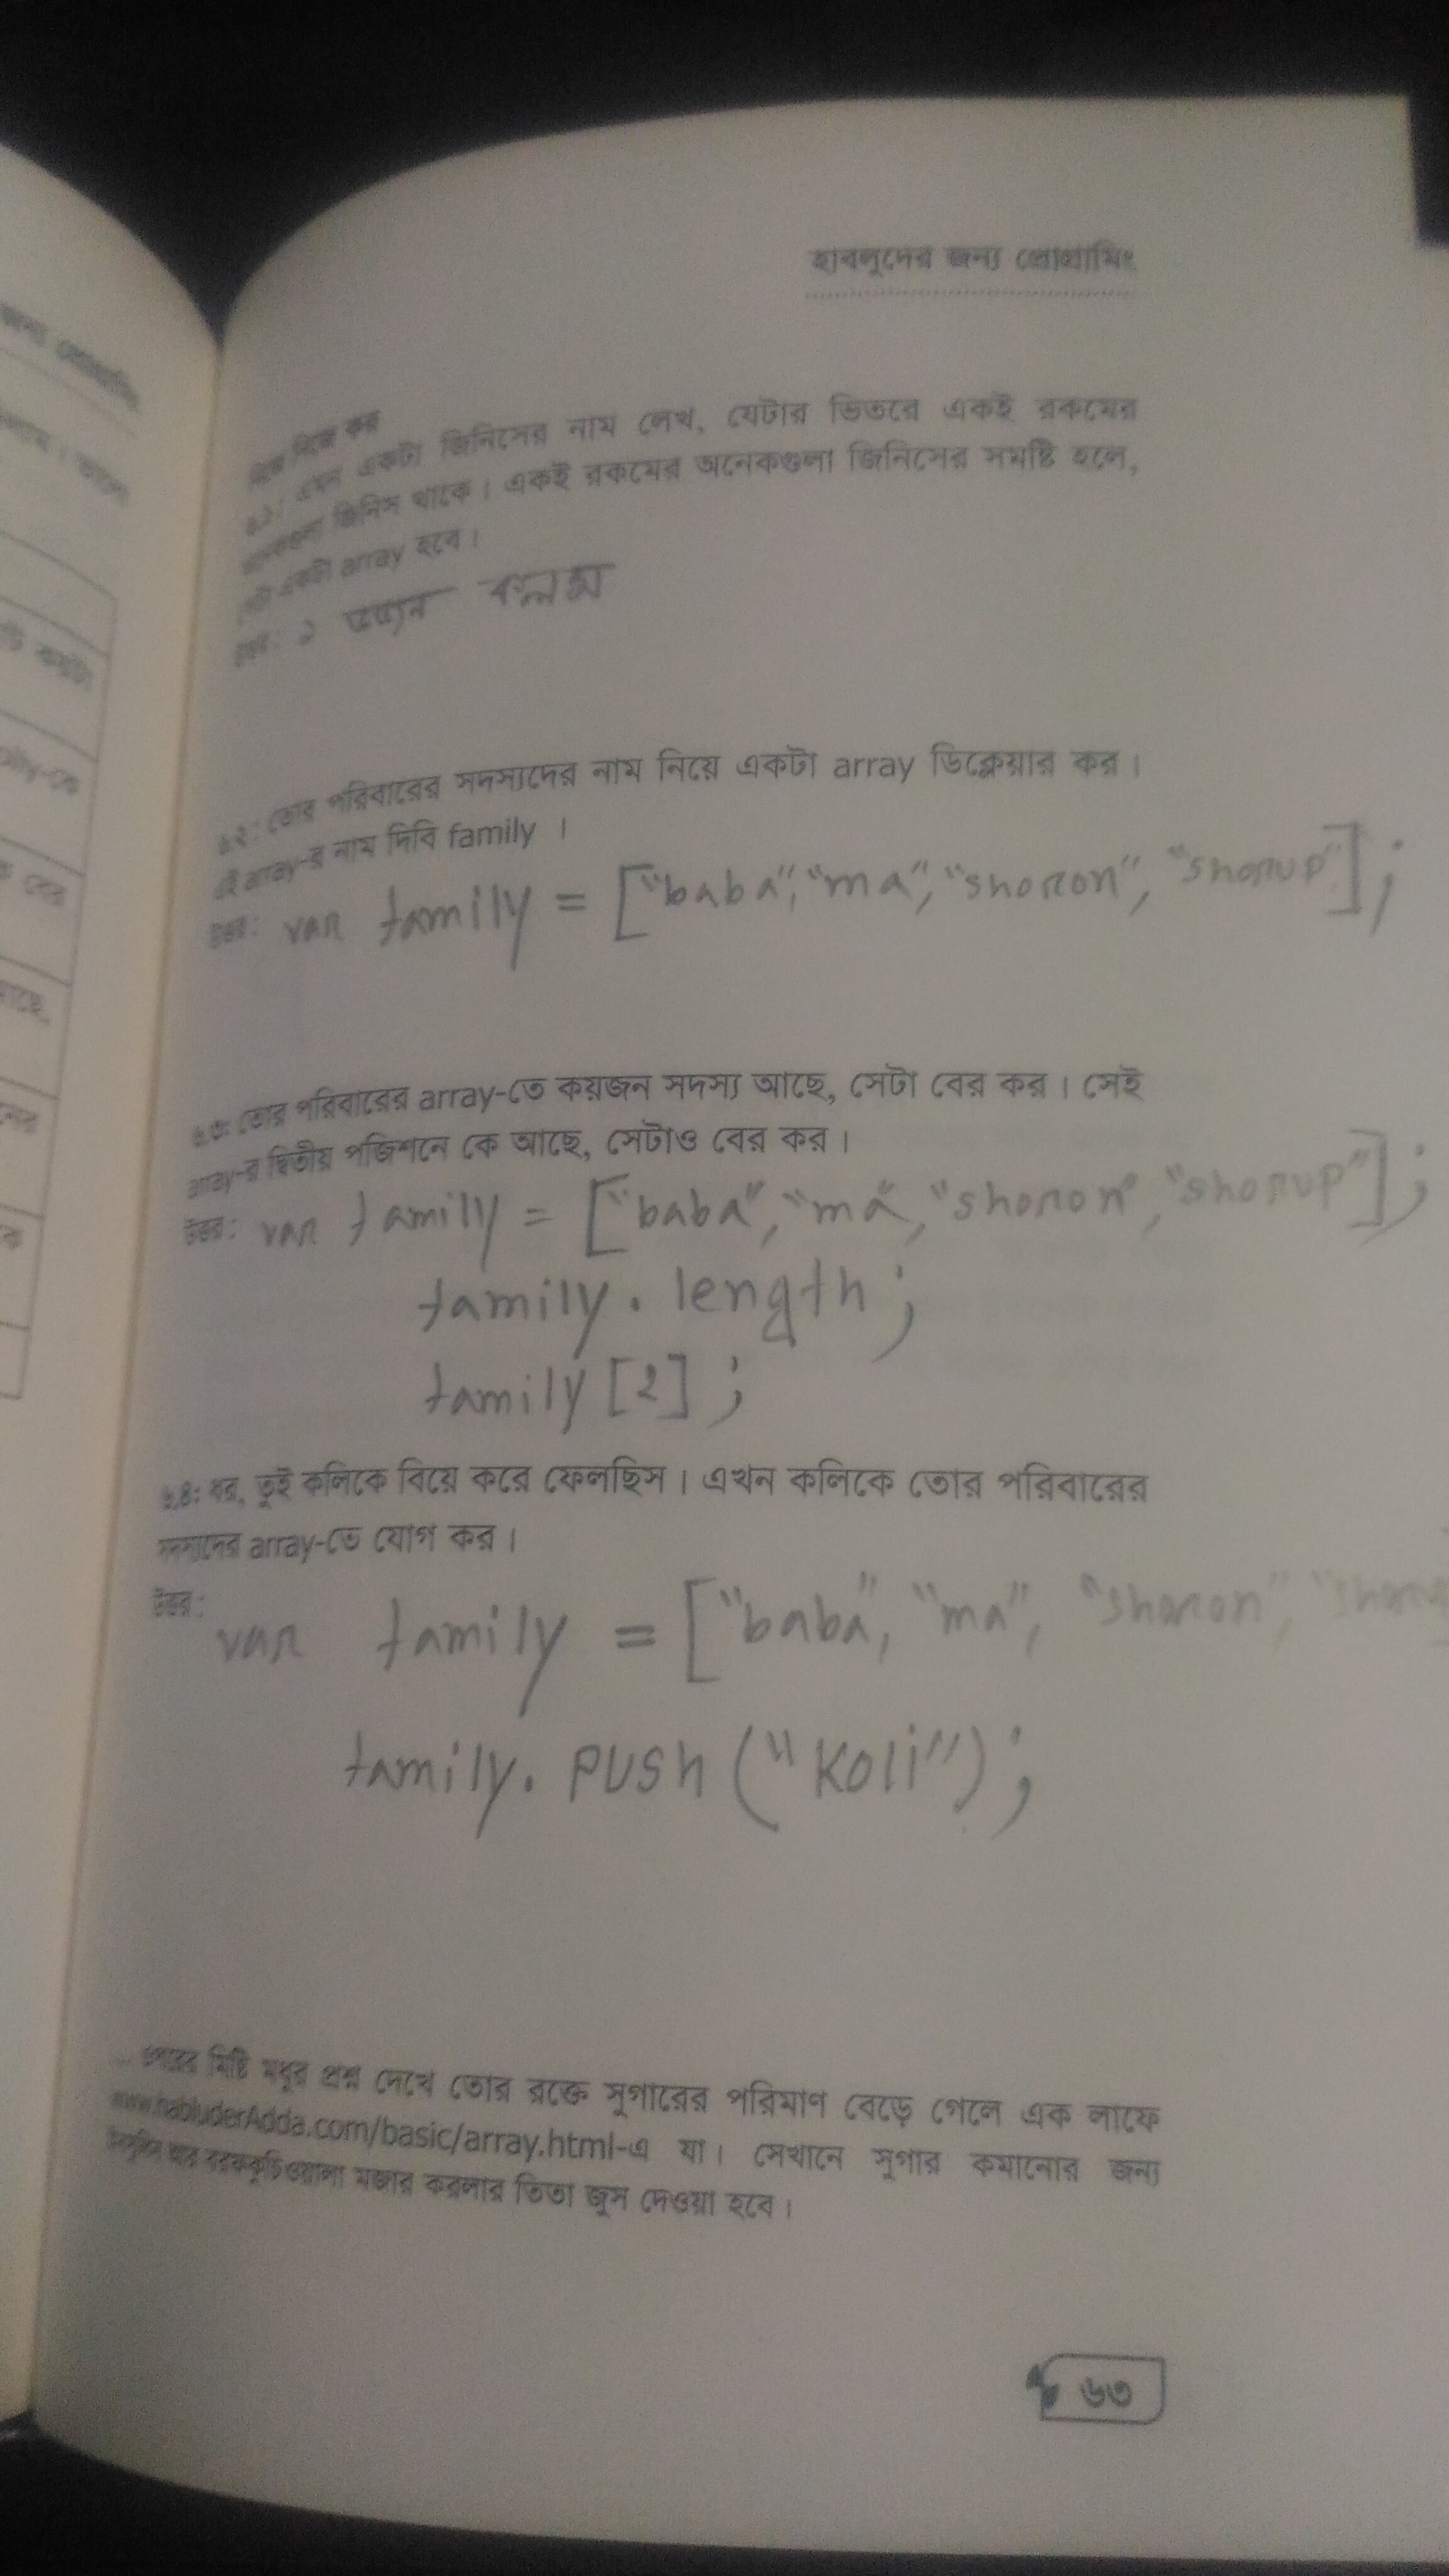 হাবলুদের জন্য প্রোগ্রামিং
নিজে নিজে কর
৬.১: এমন একটা জিনিসের নাম লেখ, যেটার ভিতরে একই রকমের
অনেকগুলা জিনিস থাকে। একই রকমের অনেকগুলা জিনিসের সমষ্টি হলে,
সেটা একটা array হবে।
উত্তর: ১ ডজন কলম
৬.২: তোর পরিবারের সদস্যদের নাম নিয়ে একটা array ডিক্লেয়ার কর।
এই array-র নাম দিবি family ।
উত্তর: var family = ["baba", "ma", "shoron", "shorup"];
৬.৩: তোর পরিবারের array-তে কয়জন সদস্য আছে, সেটা বের কর। সেই
array-র দ্বিতীয় পজিশনে কে আছে, সেটাও বের কর।
উত্তর: var family = ["baba", "ma", "shoron", "shorup"];
family.length;
family[2];
৬.৪: ধর, তুই কলিকে বিয়ে করে ফেলছিস। এখন কলিকে তোর পরিবারের
সদস্যদের array-তে যোগ কর।
উত্তর:
var family = ["baba", "ma", "shoron",
family.push("Koli");
মিষ্টি মধুর প্রশ্ন দেখে তোর রক্তে সুগারের পরিমাণ বেড়ে গেলে এক লাফে
www.habluderAdda.com/basic/array.html-এ যা। সেখানে সুগার কমানোর জন্য
মজার করলার তিতা জুস দেওয়া হবে।
৬৩